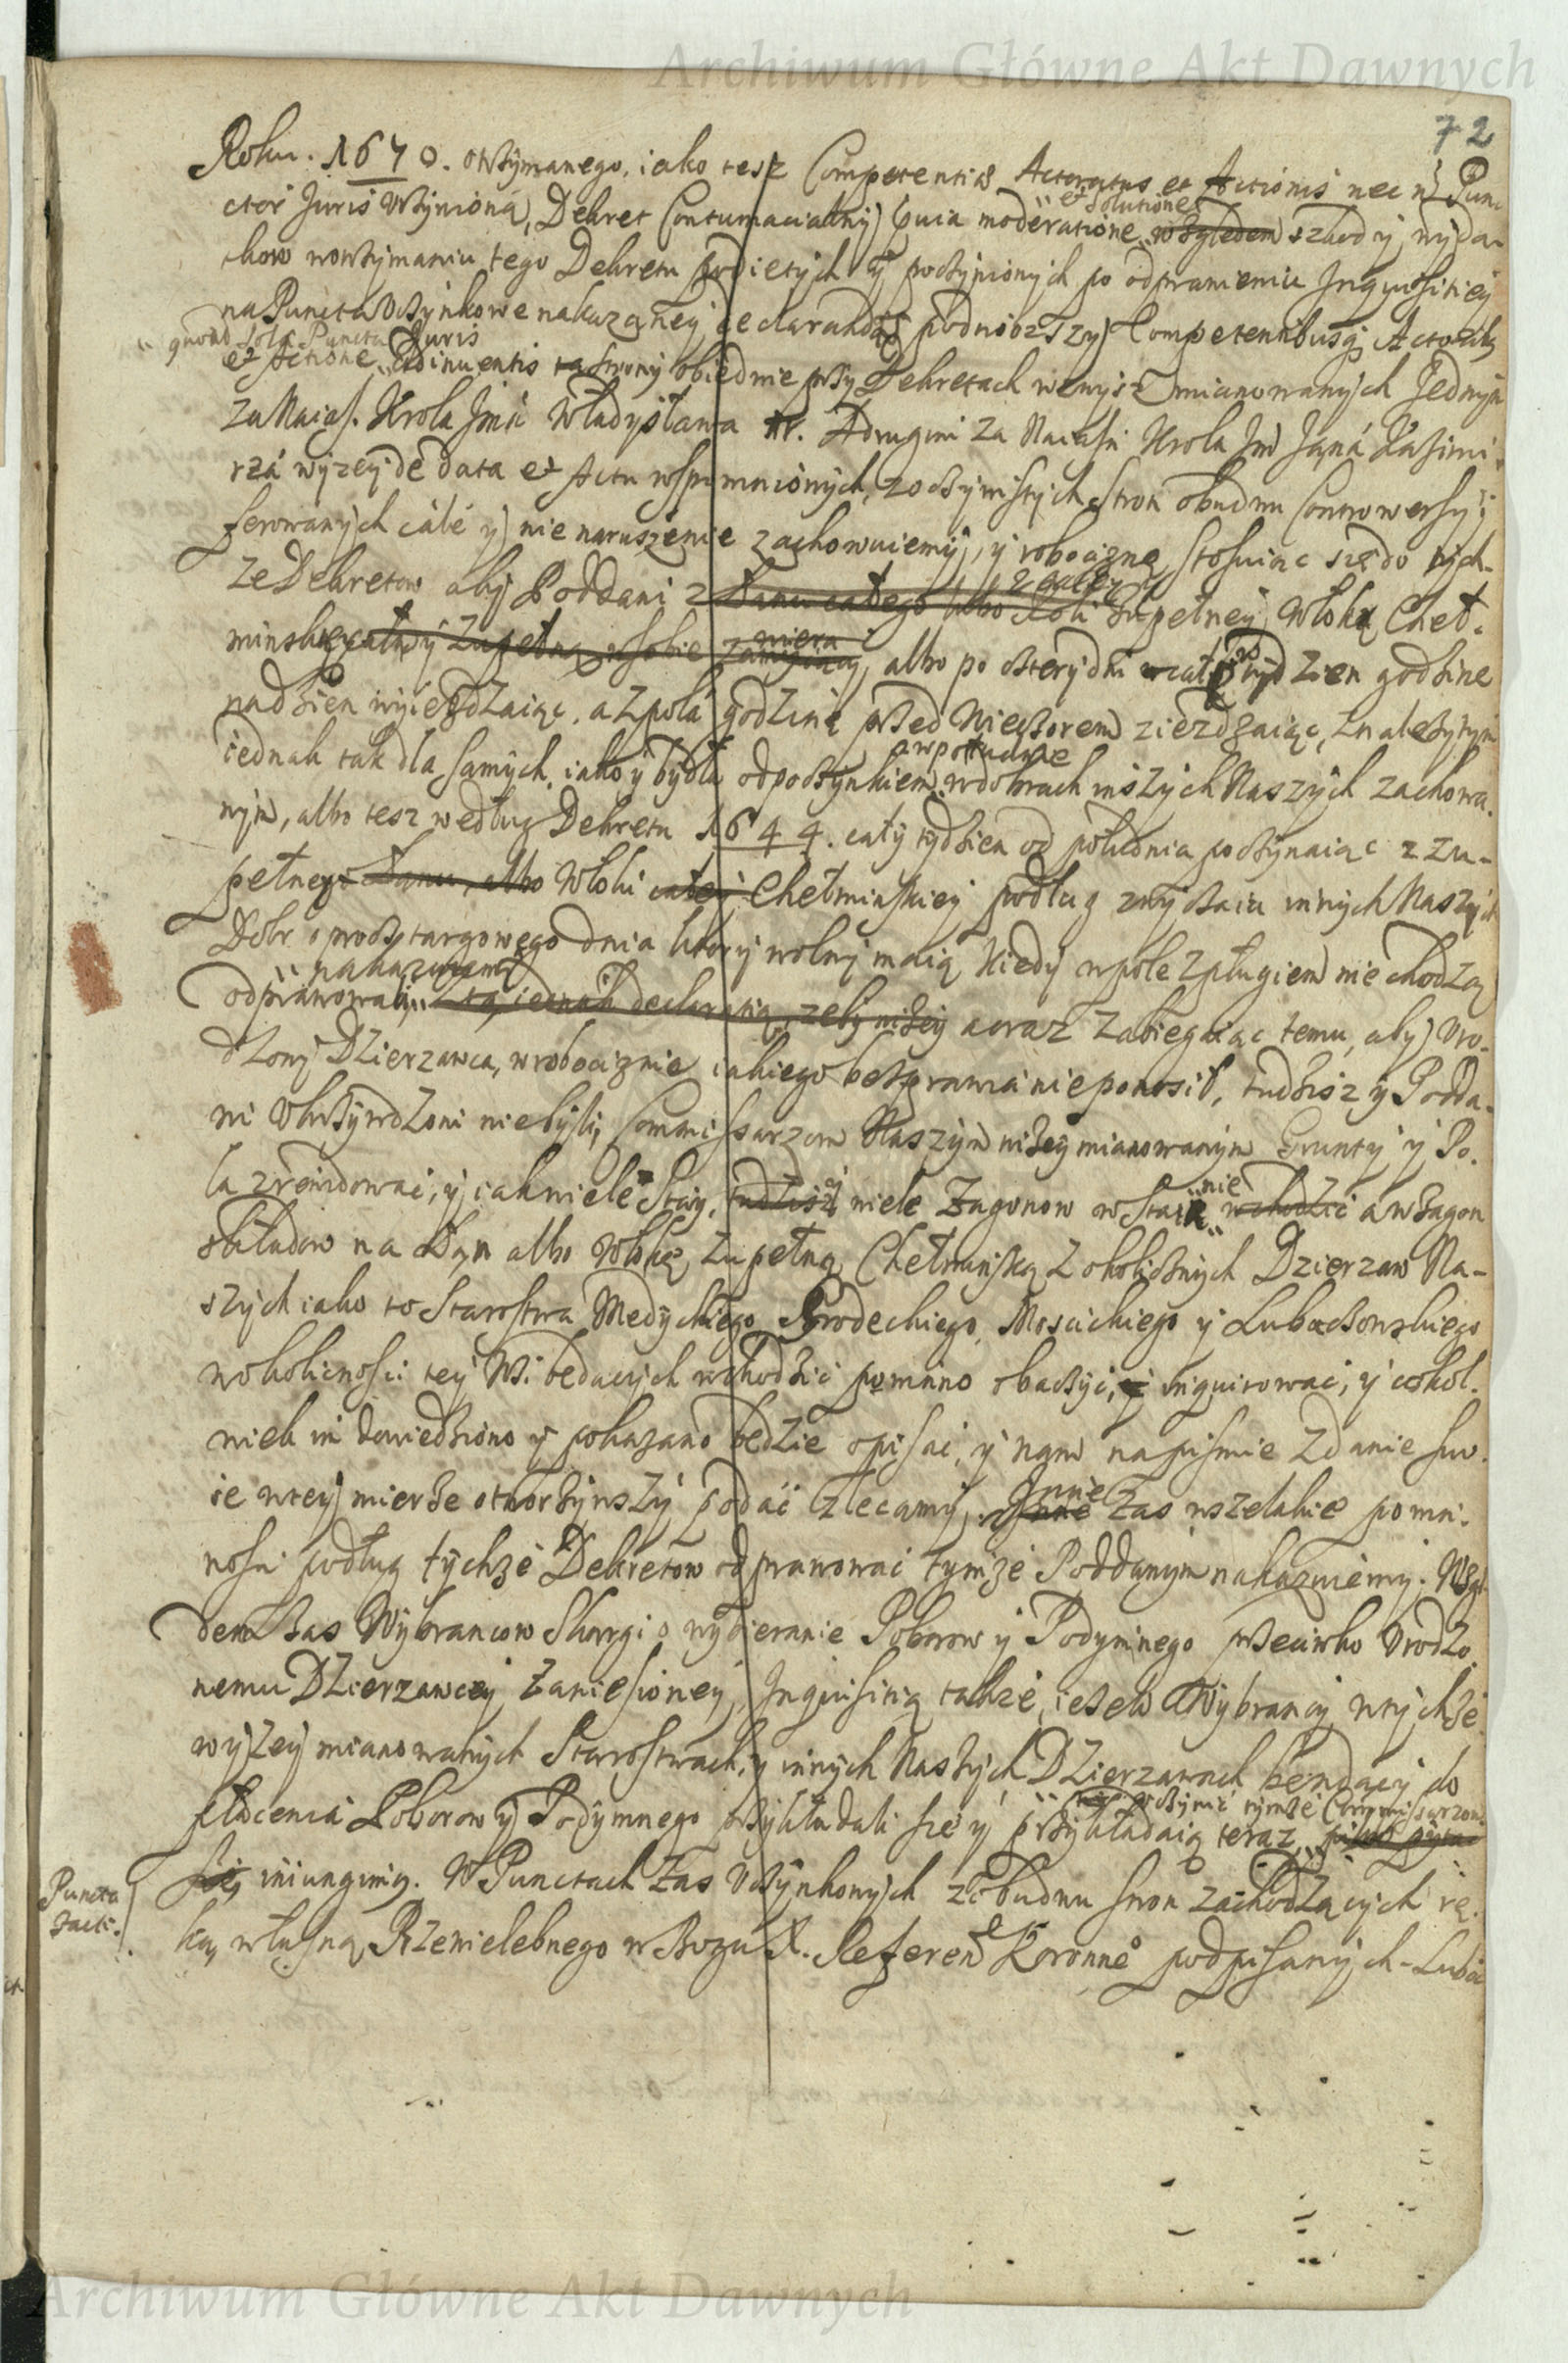 Archiwum Główne Akt Dawnych
72
Roku. 1670. otrzymanego, iako tesz Competentias Actoratus et Actionis nec n Pun
ctor Juris vczynioną, Dekret Contumacialny quia moderatione et solutione względem szkod y wyda-
tkow w otrzymaniu tego Dekretu podietych y poczynionych po odprawieniu Inquisitiey
na Puncta Uczynkowe nakazaney declarandas podniozszy Competentibusq Actoratu
et Actione quoad sola Puncta Juris adinuentis strony obiedwie przy Dekretach wewysz mianowanych Jednym
za Naias. Krola Jmci Władysława IV. A drugim za Naiasn Krola Jm Jana Kazimi-
rza wyzey de data et Actu wspomnionych, z oczywistych stron obudwu Controwersyi
ferowanych cale y nie naruszenie zachowuiemy, y robociznę stosuiąc się do tych-
ze Dekretow aby Poddani z Łanu całego albo Roli z całey zupełney Włoki Cheł-
minskiey miera, albo po cztery dni w cały tydzien godzine
na dzien wyiezdzaiąc, a z poła godzine przed Wieczorem ziezdzaiąc, z nalezytym
iednak tak dla samych, iako y bydła odpoczynkiem w południe w dobrach inszych Naszych zachowa-
nym, albo tesz według Dekretu 1644. cały tydzien od południa poczynaiąc z zu-
pełney Łanu, albo Włoki całey Chełminskiey podług zwyczaiu innych Naszych
Dobr oprocz targowego dnia ktory wolny maią kiedy w pole z pługiem nie chodzą
odprawowali, nakazuiemy z tą iednak declaratią, zeby nizey a oraz zabiegaiąc temu, aby Uro-
dzony Dzierzawca, w robociznie iakiego bezprawia nie ponosił, tudzisz y Podda-
ni Ukrzywdzeni nie byli, Commissarzom Naszym nizey mianowanym Grunty y Po-
la zrewidowac, y iak wiele Stay, tudzisz y wiele Zagonow w Staie nie wchodzic a w Zagon
składow na Łan albo Włokę zupełną Chełminską z okolicznych Dzierzaw Na-
szych iako to Starostwa Medyckiego, Grodeckiego, Moscickiego y Lubaczowskiego
w okolicnosci tey Wsi bedacych wchodzic powinno obaczyc, y inquirowac, y cokol-
wiek im dowiedziono y pokazano bedzie opisac, y nam na pismie zdanie swo-
ie w tey mierze otworzywszy podac zlecamy, Inne Inne zas wszelakie powin-
nosci podług tychze Dekretow odprawowac tymze Poddanym nakazuiemy. Wzgl-
dem zas Wybrancow Skargi o wybieranie Poborow y Podymnego przeciwko Urodzo-
nemu Dzierzawcy zaniesioney, Inquisitią takze, iezeli Wybrancy w tychze
wyzey mianowanych Starostwach, y innych Naszych Dzierzawach bendący do
płacenia Poborow y Podymnego przykładali się y przykładaią teraz, uczynic tymze Commissarzom
iniungimy. W Punctach zas Uczynkowych z obudwu stron zachodzących rę-
Puncta
facti.
ką własną Przewielebnego w Bogu X. Referend Koronne podpisanych - Lubo
Archiwum Główne Akt Dawnych